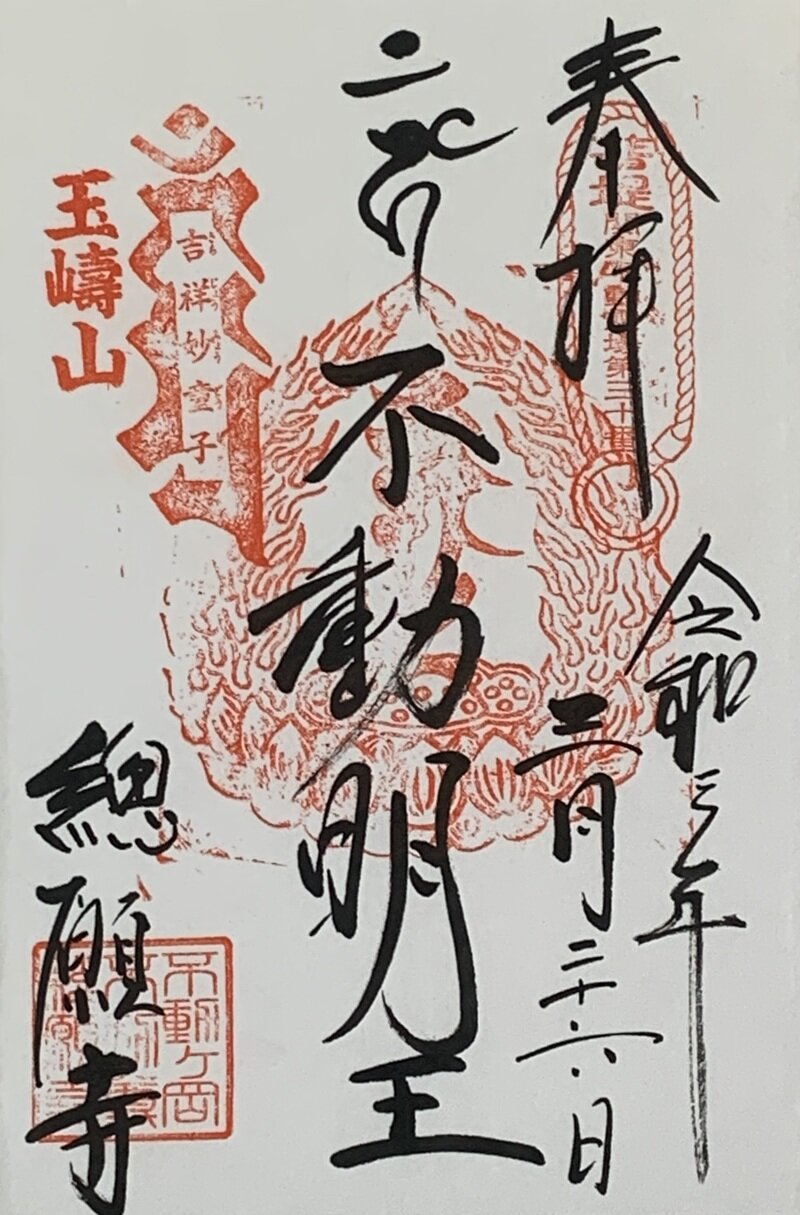 奉拝
令和三年
三月二十六日
不動明王
吉祥妙童子
玉嶹山
總願寺
不動ヶ岡